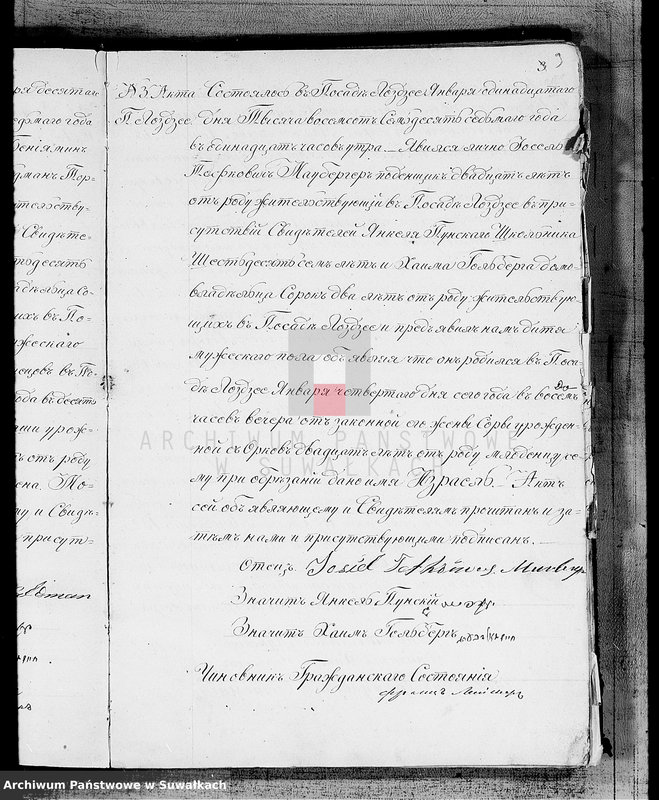 3
№3. Акта Состоялось въ Посадѣ Лоздзее Января одинадцатаго
П. Лоздзее. дня Тысяча восемсотъ Семьдесятъ седьмаго года
въ одинадцать часовъ утра. Явился лично Іосель
поденщикъ двадцать лѣтъ
отъ роду жительствующій въ Посадѣ Лоздзее въ при-
сутствіи Свидѣтелей Янкеля Пунскаго Школьника
Шестьдесятъ семь лѣтъ и Хаима Гольберга домо-
владѣльца Сорокъ два лѣтъ отъ роду жительствую-
щихъ въ Посадѣ Лоздзее и предъявилъ намъ дитя
мужескаго пола объявляя что онъ родился въ Поса-
дѣ Лоздзее Января четвертаго дня сего года въ восемь
часовъ вечера отъ законной его жены Соры урожден-
ной двадцать лѣтъ отъ роду младенцу се-
му при обрѣзаніи дано имя Израель. Актъ
сей объявляющему и Свидѣтелямъ прочитанъ и за-
тѣмъ нами и присутствующими подписанъ.
Отецъ
Значитъ Янкель Пунскій
Значитъ Хаимъ Гольбергъ
Чиновникъ Гражданскаго Состоянія
ря десятаго
едьмаго года
Беніяминъ
Свидѣте-
ихъ въ По-
ужескаго
ода въ десять
отъ роду
ена.
му и Свидѣ-
присут-
ARCHIWUM PAŃSTWOWE
W SUWAŁKACH
Archiwum Państwowe w Suwałkach